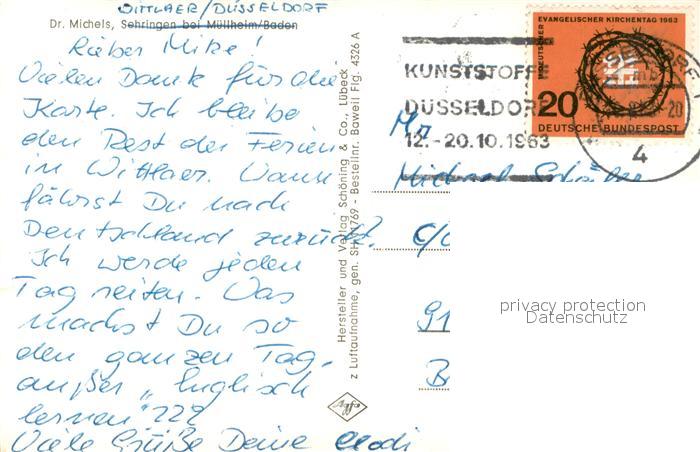 WITTLAER/DÜSSELDORF
Dr. Michels, Sehringen bei Müllheim/Baden
Lieber Mike!
Vielen Dank für die
Karte. Ich bleibe
den Rest der Ferien
in Wittlaer. Wann
fährst Du nach
Deutschland zurück?
Ich werde jeden
Tag reiten. Was
machst Du so
den ganzen Tag,
außer „Englisch
lernen“???
Viele Grüße Deine
Hersteller und Verlag Schöning & Co., Lübeck
z Luftaufnahme, gen. SH 1/1769 - Bestellnr. Baweil Flg. 4326 A
Agfa
KUNSTSTOFFE
DÜSSELDORF
12.-20.10.1963
11. DEUTSCHER EVANGELISCHER KIRCHENTAG 1963
20
DEUTSCHE BUNDESPOST
4
Mr
Michael
c/o
91
B
privacy protection
Datenschutz